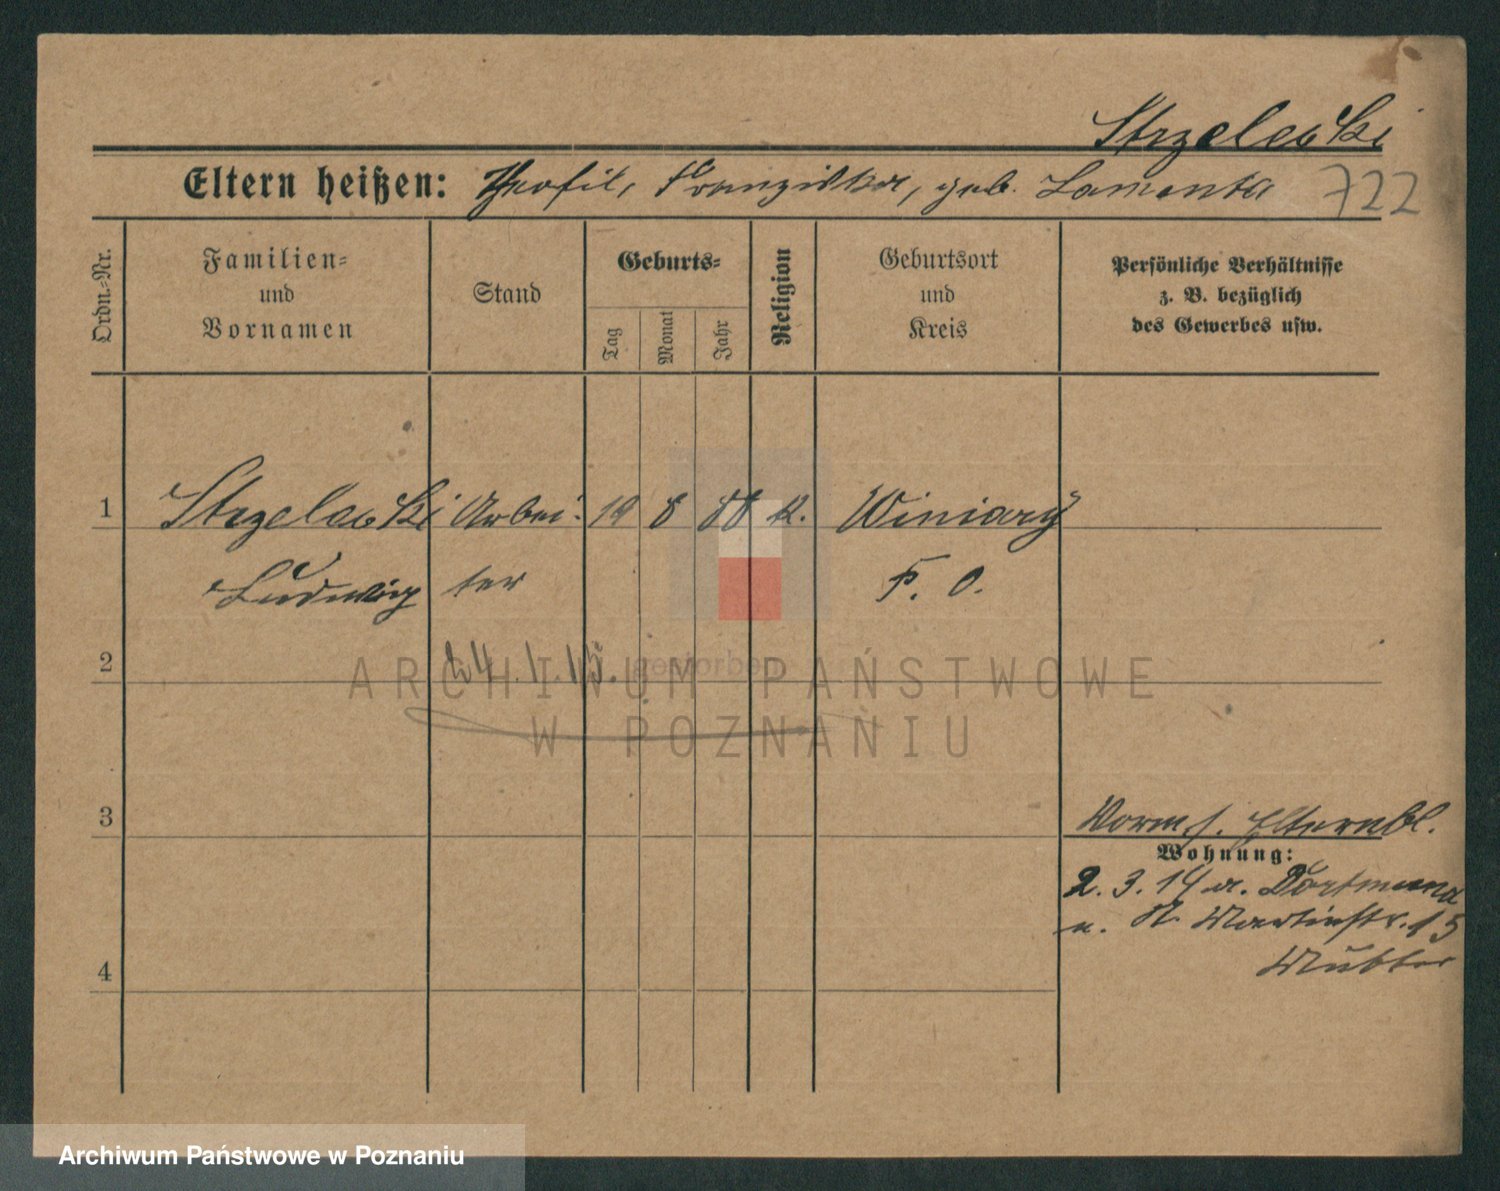 Strzelecki
Eltern heißen: Theofil, Franziska, geb. Lamenta 722
Ordn.=Nr.
Familien=
und
Vornamen
Stand
Geburts=
Tag
Monat
Jahr
Religion
Geburtsort
und
Kreis
Persönliche Verhältnisse
z. B. bezüglich
des Gewerbes usw.
1 Strzelecki Arbei- 19 8 88 K. Winiary
Ludwig ter P. O.
2 24.1.15. gestorben
ARCHIWUM PAŃSTWOWE
W POZNANIU
3 Vorm. s. Elternbl.
Wohnung:
2. 3. 14 a. Dortmund
n. St. Martinstr. 15
4 Mutter
Archiwum Państwowe w Poznaniu